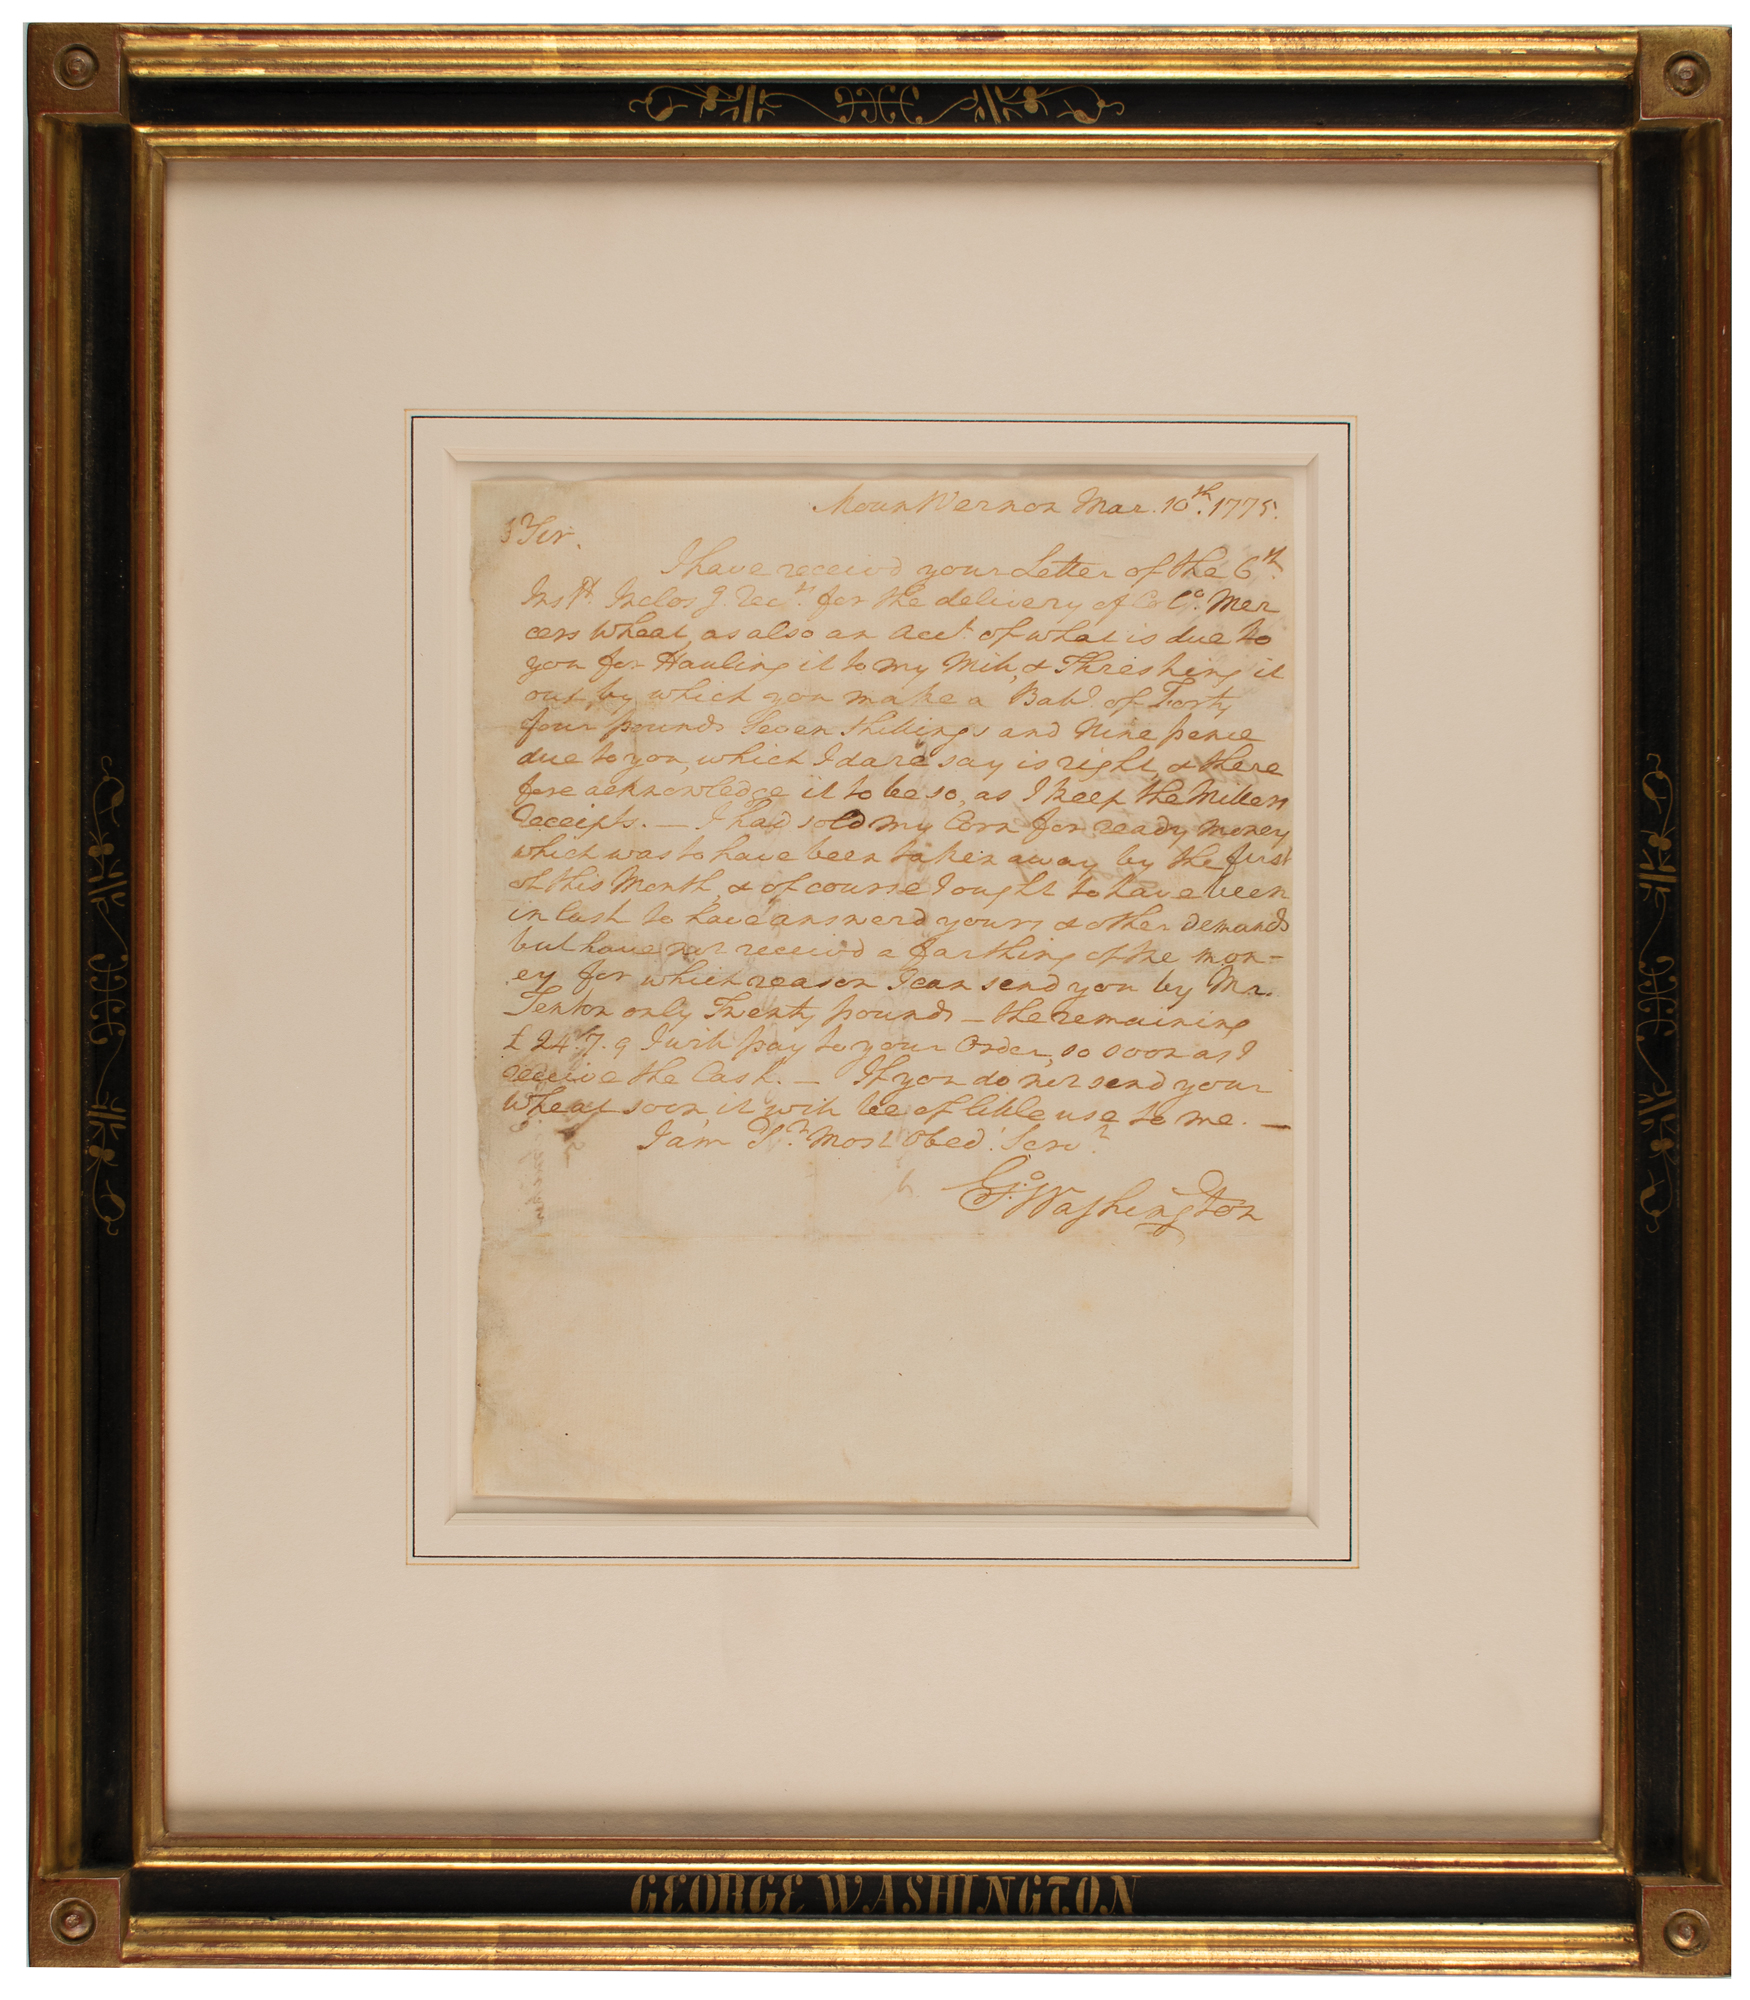 Mount Vernon Mar. 10th. 1775.
Sir.
I have receivd your Letter of the 6th.
Inst. Inclosg. Rects. for the delivery of Colo. Mer
cers Wheat, as also an Acct. of what is due to
you for Hauling it to my Mill, & Threshing it
out, by which you make a Balle. of Forty
four pounds Seven Shillings and Nine pence
due to you, which I dare say is right, & there
fore acknowledge it to be so, as I keep the Millers
Receipts. — I had sold my Corn for ready money
which was to have been taken away by the first
of this Month, & of course I ought to have been
in Cash to have answerd yours & other demands
but have not receivd a farthing of the mon-
ey for which reason I can send you by Mr.
only Twenty pounds — the remaining
£24.7.9 I will pay to your Order, so soon as I
receive the Cash. — If you do not send your
Wheat soon it will be of little use to me. —
I am Sr. Most Obed. Servt.
Go: Washington
GEORGE WASHINGTON